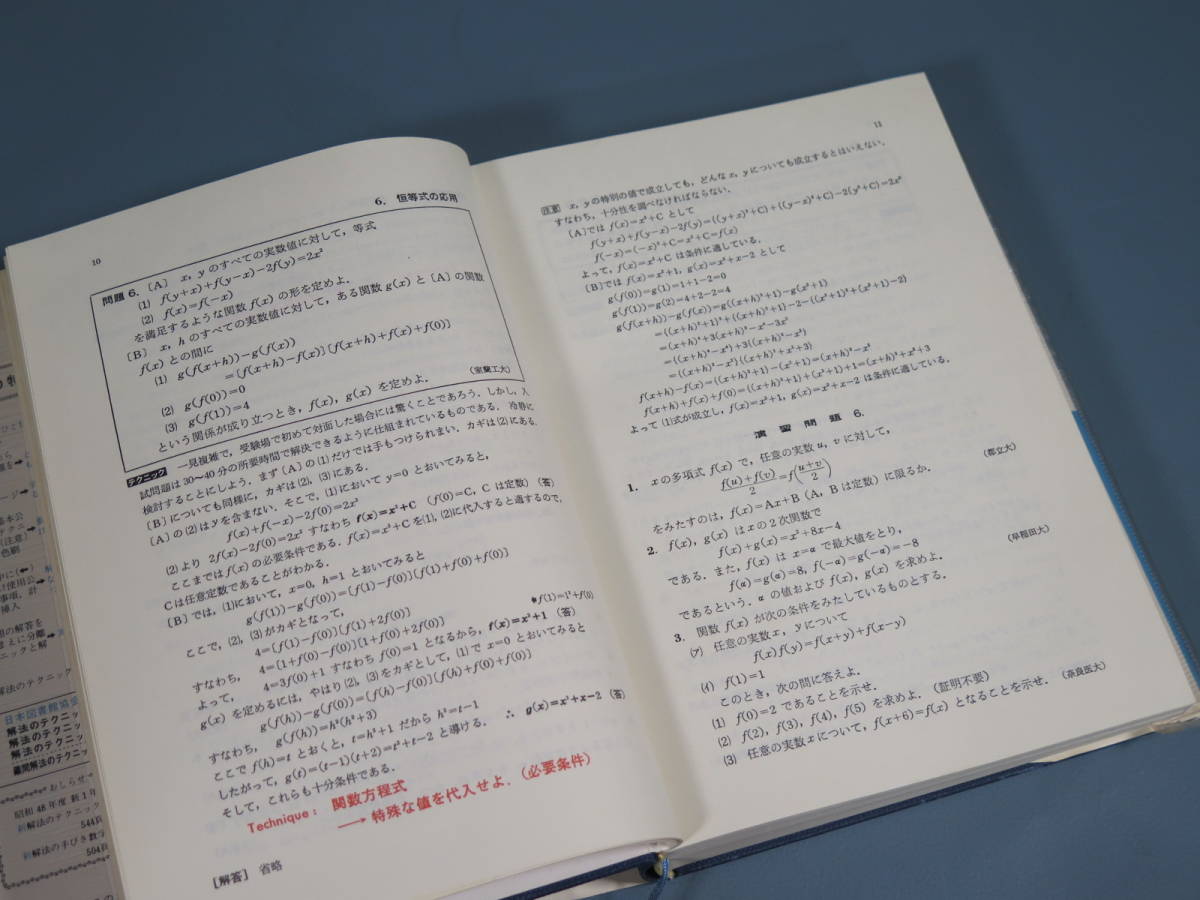 10
6. 恒等式の応用
問題6. 〔A〕 x, y のすべての実数値に対して, 等式
(1) f(y+x)+f(y−x)−2f(y)=2x²
(2) f(x)=f(−x)
を満足するような関数 f(x) の形を定めよ.
〔B〕 x, h のすべての実数値に対して, ある関数 g(x) と〔A〕の関数
f(x) との間に
(1) g(f(x+h))−g(f(x))
={f(x+h)−f(x)}{f(x+h)+f(x)+f(0)}
(2) g(f(0))=0
(3) g(f(1))=4
という関係が成り立つとき, f(x), g(x) を定めよ. (室蘭工大)
テクニック 一見複雑で, 受験場で初めて対面した場合には驚くことであろう. しかし, 入
試問題は30〜40分の所要時間で解決できるように仕組まれているものである. 冷静に
検討することにしよう. まず〔A〕の(1)だけでは手もつけられまい. カギは(2)にある.
〔B〕についても同様に, カギは(2), (3)にある.
〔A〕の(2)は y を含まない. そこで, (1)において y=0 とおいてみると,
f(x)+f(−x)−2f(0)=2x²
(2)より 2f(x)−2f(0)=2x² すなわち f(x)=x²+C (f(0)=C, C は定数) (答)
ここまでは f(x) の必要条件である. f(x)=x²+C を(1), (2)に代入すると適するので,
C は任意定数であることがわかる.
〔B〕では, (1)において, x=0, h=1 とおいてみると
g(f(1))−g(f(0))={f(1)−f(0)}{f(1)+f(0)+f(0)}
ここで, (2), (3)がカギとなって,
4={f(1)−f(0)}{f(1)+2f(0)} *f(1)=1²+f(0)
すなわち, 4={1+f(0)−f(0)}{1+f(0)+2f(0)}
よって, 4=3f(0)+1 すなわち f(0)=1 となるから, f(x)=x²+1 (答)
g(x) を定めるには, やはり(2), (3)をカギとして, (1)で x=0 とおいてみると
g(f(h))−g(f(0))={f(h)−f(0)}{f(h)+f(0)+f(0)}
すなわち, g(f(h))=h²(h²+3)
ここで f(h)=t とおくと, t=h²+1 だから h²=t−1
したがって, g(t)=(t−1)(t+2)=t²+t−2 と導ける. ∴ g(x)=x²+x−2 (答)
そして, これらも十分条件である.
Technique: 関数方程式
⟶ 特殊な値を代入せよ. (必要条件)
[解答] 省略
11
注意 x, y の特別の値で成立しても, どんな x, y についても成立するとはいえない.
すなわち, 十分性を調べなければならない.
〔A〕では f(x)=x²+C として
f(y+x)+f(y−x)−2f(y)={(y+x)²+C}+{(y−x)²+C}−2(y²+C)=2x²
f(−x)=(−x)²+C=x²+C=f(x)
よって, f(x)=x²+C は条件に適している.
〔B〕では f(x)=x²+1, g(x)=x²+x−2 として
g(f(0))=g(1)=1+1−2=0
g(f(1))=g(2)=4+2−2=4
g(f(x+h))−g(f(x))=g((x+h)²+1)−g(x²+1)
={(x+h)²+1}²+{(x+h)²+1}−2−{(x²+1)²+(x²+1)−2}
=(x+h)⁴+3(x+h)²−x⁴−3x²
={(x+h)⁴−x⁴}+3{(x+h)²−x²}
={(x+h)²−x²}{(x+h)²+x²+3}
f(x+h)−f(x)={(x+h)²+1}−(x²+1)=(x+h)²−x²
f(x+h)+f(x)+f(0)={(x+h)²+1}+(x²+1)+1=(x+h)²+x²+3
よって(1)式が成立し, f(x)=x²+1, g(x)=x²+x−2 は条件に適している.
演習問題 6.
1. x の多項式 f(x) で, 任意の実数 u, v に対して,
f(u)+f(v)/2=f(u+v/2)
をみたすのは, f(x)=Ax+B (A, B は定数) に限るか. (都立大)
2. f(x), g(x) は x の2次関数で
f(x)+g(x)=x²+8x−4
である. また, f(x) は x=α で最大値をとり,
f(α)=g(α)=8, f(−α)=g(−α)=−8
であるという. α の値および f(x), g(x) を求めよ. (早稲田大)
3. 関数 f(x) が次の条件をみたしているものとする.
(ア) 任意の実数 x, y について
f(x)f(y)=f(x+y)+f(x−y)
(イ) f(1)=1
このとき, 次の問に答えよ.
(1) f(0)=2 であることを示せ.
(2) f(2), f(3), f(4), f(5) を求めよ. (証明不要)
(3) 任意の実数 x について, f(x+6)=f(x) となることを示せ. (奈良医大)
日本図書館協会
解法のテクニッ
解法のテクニッ
解法のテクニッ
幾何解法のテクニッ
おしらせ
昭和 48 年度 数 1 年
新解法のテクニック
544頁
新解法の手びき数学
504頁